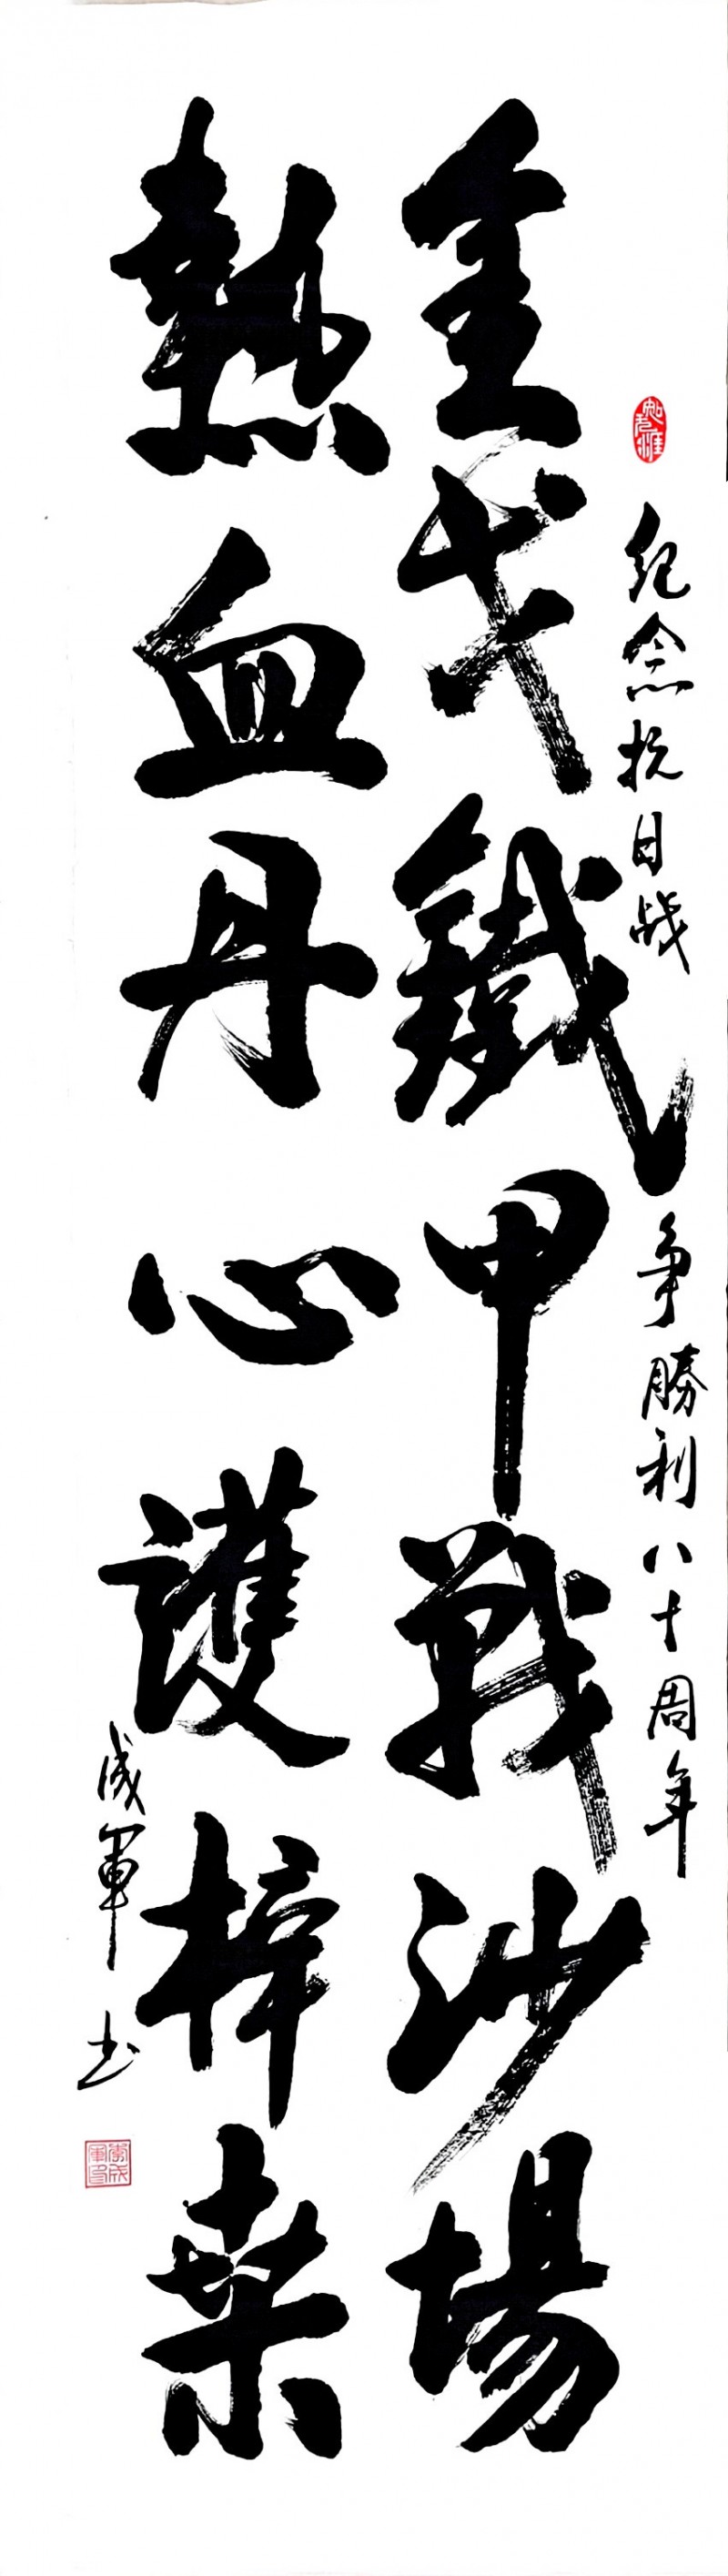 紀念抗日战争勝利八十周年
金戈鐵甲戰沙場
熱血丹心護梓桑
成軍书
李成軍印